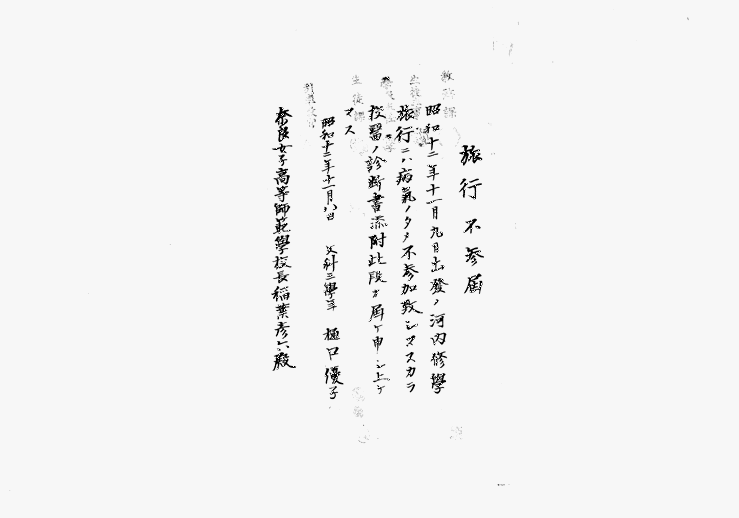 旅行不参届
昭和十二年十一月九日出發ノ河内修學
旅行ニハ病氣ノタメ不参加致シマスカラ
校醫ノ診断書添附此段お届ケ申シ上ゲ
マス
昭和十二年十一月八日 文科三學年 樋口優子
奈良女子高等師範學校長稲葉彦六殿